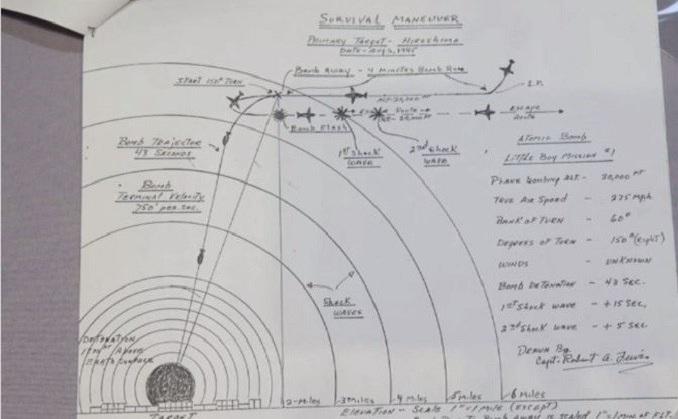 SURVIVAL MANEUVER
PRIMARY TARGET - HIROSHIMA
START 150° TURN
BOMB AWAY - 4 MINUTES BOMB RUN
I.P.
ESCAPE
ROUTE
BOMB FLASH
1ST SHOCK
WAVE
2ND SHOCK
WAVE
BOMB TRAJECTORY
43 SECONDS
BOMB
TERMINAL VELOCITY
750' PER SEC.
SHOCK
WAVES
DETONATION
ABOVE
TARGET
2-MILES
3 MILES
4 MILES
5 MILES
6 MILES
ELEVATION - SCALE 1"=1 MILE (EXCEPT)
ATOMIC BOMB
LITTLE BOY MISSION #1
PLANE BOMBING ALT. - 30,000 FT
TRUE AIR SPEED - 275 MPH.
BANK OF TURN - 60°
DEGREES OF TURN - 150° (RIGHT)
WINDS - UNKNOWN
BOMB DETONATION - 43 SEC.
1ST SHOCK WAVE - +15 SEC.
2ND SHOCK WAVE - +5 SEC.
DRAWN BY
CAPT. Robert A. Lewis